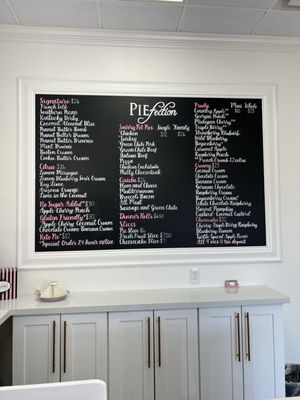 PIEfection
Signature $26
French Silk
Southern Pecan
Kentucky Derby
Coconut Almond Bliss
Peanut Butter Bomb
Peanut Butter Dream
Peanut Butter Brownie
Mint Brownie
Boston Cream
Cookie Butter Cream
Citrus $26
Lemon Meringue
Lemon Blueberry Sour Cream
Key Lime
Arizona Orange
Lime in the Coconut
No Sugar Added* $30
Apple Cherry Peach
Gluten Friendly* $30
Coconut Apple Cherry
Chocolate Cream Banana Cream
Keto Pie $12
*Special Order 24 hour notice
Savory Pot Pies Single Family
Chicken $12 $26
Turkey
Green Chile Pork
Green Chile Beef
Italian Beef
Pizza
Chicken Enchilada
Philly Cheesesteak
Quiche $25
Ham and Cheese
Mediterranean
Broccoli Bacon
Keto Meat
Sausage and Green Chile
Dinner Rolls
Slices
Pie Slice $6
Fresh Fruit Slice $7.50
Cheesecake Slice
Fruity Mini Whole
Country Apple**
Georgia Peach**
Michigan Cherry**
Triple Berry**
Strawberry Rhubarb
Wild Blueberry
Boysenberry**
Caramel Apple
Raspberry Peach
**French Crumb $2 extra
Creamy
Coconut Cream
Chocolate Cream
Banana Cream
German Chocolate
Raspberry Cream
Boysenberry Cream*
Apple Cherry Peach
Chocolate Caramel
Harvest Pumpkin
Custard - Coconut Custard
Cheesecake
Triple Chocolate
Caramel Turtle
Key Lime
Raspberry White Chocolate
Blueberry Lemon